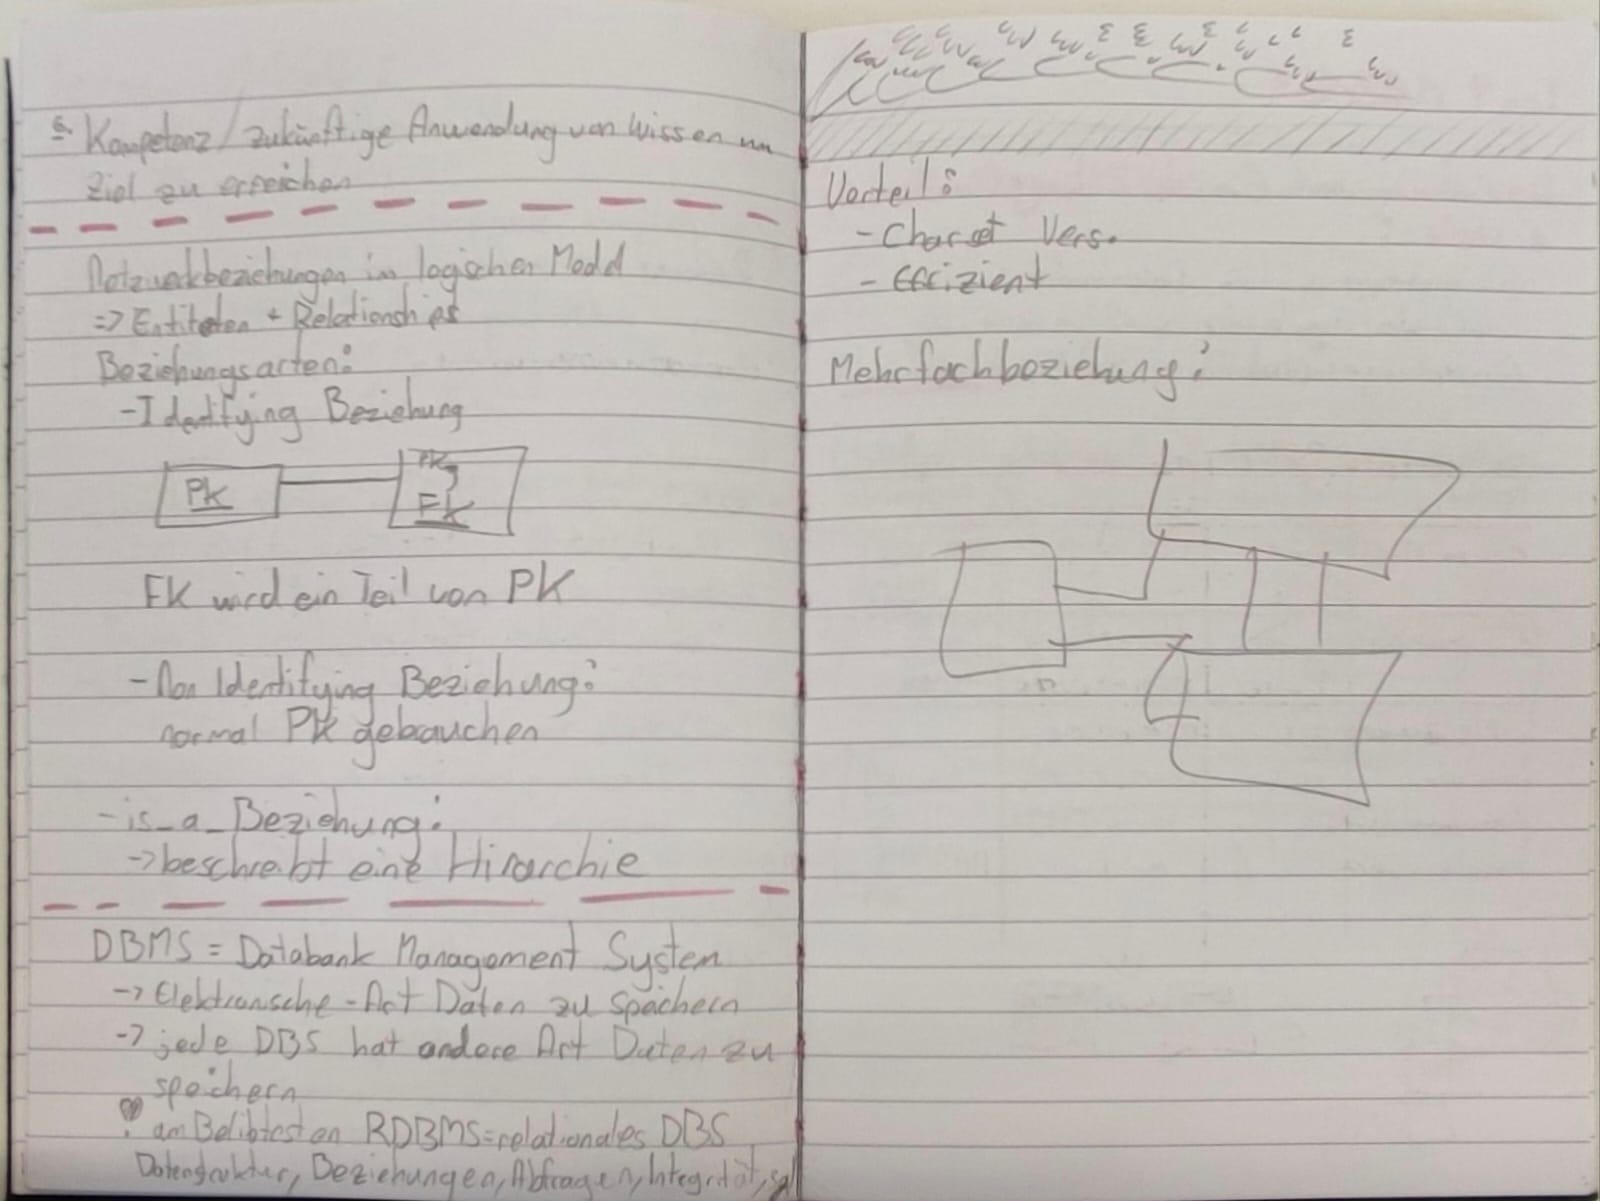 6. Kompetenz/zukünftige Anwendung von Wissen um
Ziel zu erreichen
Netzwerkbeziehungen im logischen Modell
=> Entitäten + Relationships
Beziehungsarten:
- Identifying Beziehung
PK
PK
FK
FK wird ein Teil von PK
- Non Identifying Beziehung:
normal PK gebrauchen
- is_a_Beziehung:
-> beschreibt eine Hirarchie
DBMS = Databank Management System
-> Elektronische-Art Daten zu speichern
-> jede DBS hat andere Art Daten zu
speichern
am Belibtesten RDBMS=relationales DBS
Datenstruktur, Beziehungen, Abfragen, Integrität,
Vorteil:
- Charset Vers.
- Effizient
Mehrfachbeziehung: